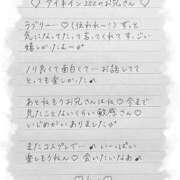 ♡ アイネイン 202のお兄さん ♡
ラブリー ♡ (伝われ〜!) ずっと
気になってたって言ってくれて、すごい
嬉しかったよ〜
ノリ良くて面白くて…お話してて
とても楽しかった♪
あと何よりお兄さんはね ♡ 今まで
見たことないくらい敏感さん ♡
いじめがいありました
またコスプレして… いーっぱい
楽しもうねん ♡ 会いたいなあ♪